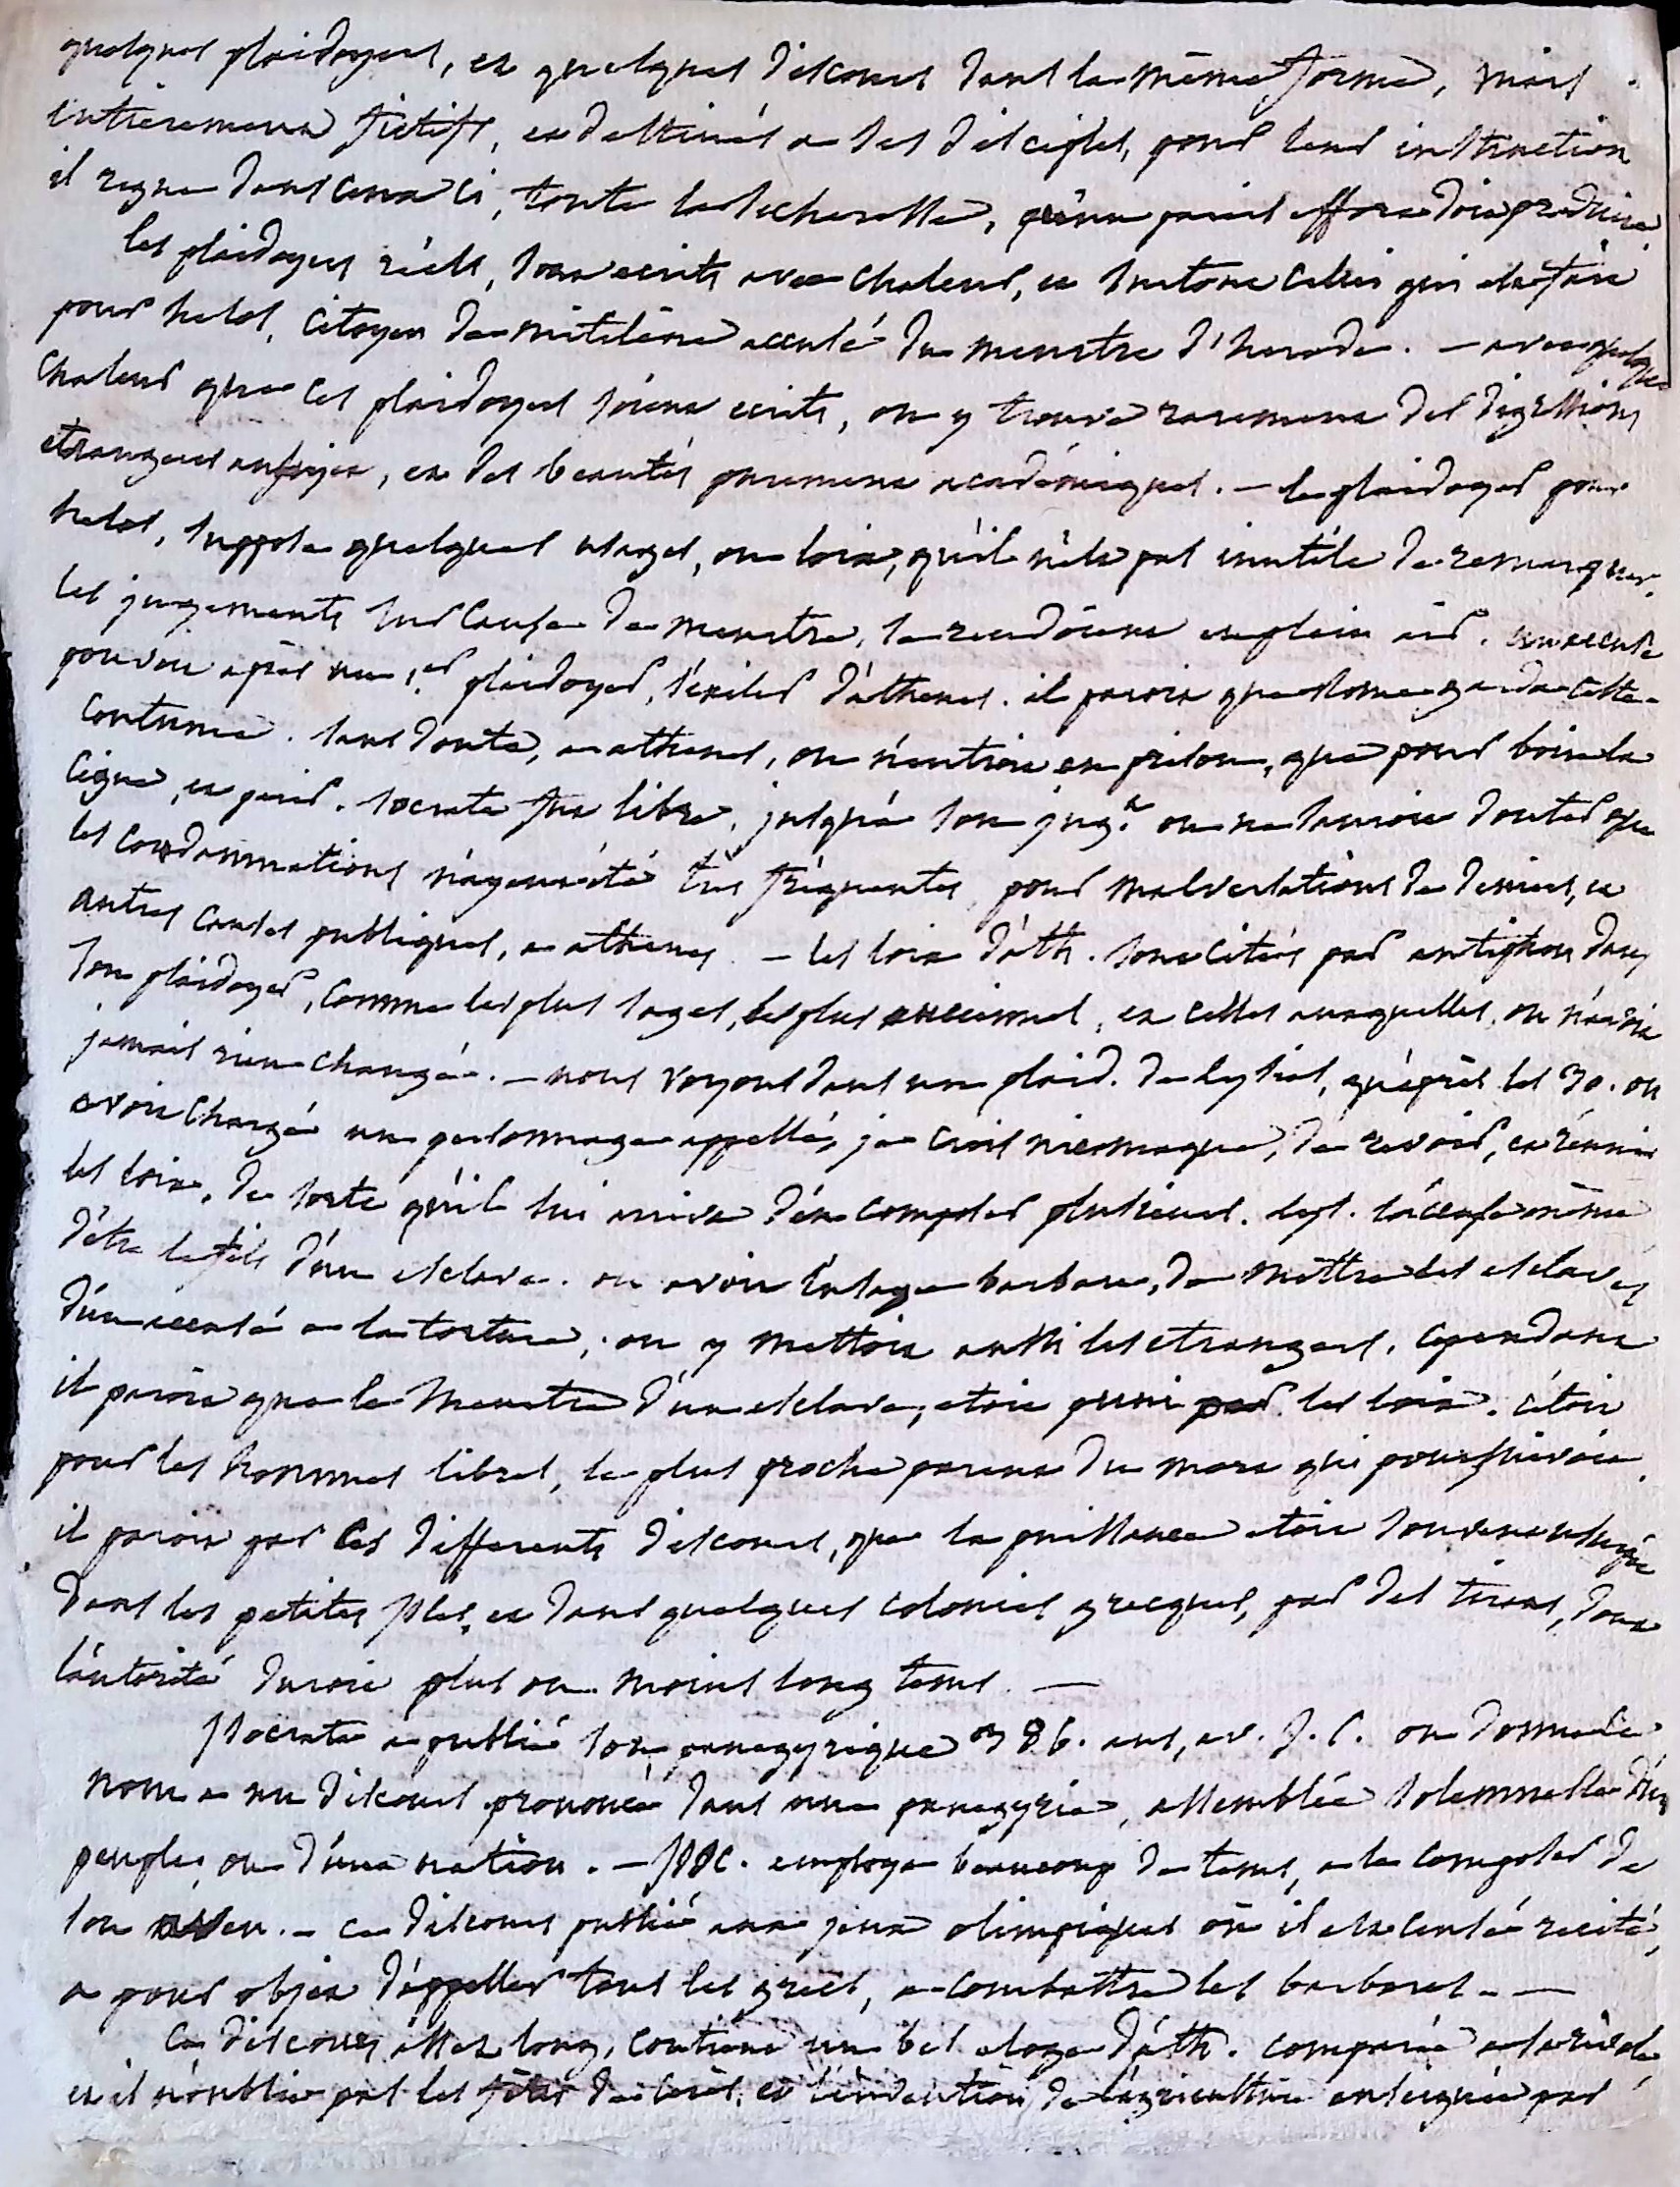 quelques plaidoyers, et quelques discours dans la même forme, mais
entièrement fictifs, et destinés a ses disciples, pour leur instruction
il regne dans ceux ci, toute la secheresse, qu'un pareil effort doit produire.
les plaidoyers réels, sont ecrits avec chaleur, et surtout celui qui est fait
pour helos, citoyen de mitilène accusé du meurtre d'herode. — avec quelque
chaleur que ces plaidoyers soient ecrits, on y trouve rarement des digressions
etrangeres au sujet, et des beautés purement académiques. — le plaidoyer pour
helos, suppose quelques usages, ou loix, qu'il n'est pas inutile de remarquer.
les jugements sur cause de meurtre, se rendoient en plein air. un accusé
pouvoit après un 1.er plaidoyer, s'exiler d'athenes. il paroit que rome garda cette
coutume. sans doute, a athenes, on n'entroit en prison, que pour boire la
cigue, et perir. socrate fut libre, jusqu'à son jug.t on ne sauroit douter que
les condamnations n'ayent été très fréquentes, pour malversations de deniers, et
autres causes publiques, a athenes. — les loix d'ath. sont citées par antiphon dans
son plaidoyer, comme les plus sages, les plus anciennes, et celles auxquelles, on n'avoit
jamais rien changé. — nous voyons dans un plaid. de lysias, qu'après les 30. on
avoit chargé un personnage appellé, je crois nicomaque, de revoir, et réunir
les loix, de sorte qu'il lui arriva d'en composer plusieurs. lys. l'accuse même
d'être le fils d'un esclave. on avoit l'usage barbare, de mettre les esclaves
d'un accusé a la torture; on y mettoit aussi les etrangers. cependant
il paroit que le meurtre d'un esclave, etoit puni par les loix. c'etoit
pour les hommes libres, le plus proche parent du mort qui poursuivoit.
il paroit par ces differents discours, que la puissance etoit souvent usurpée
dans les petites isles, et dans quelques colonies grecques, par des tirans, dont
l'autorité duroit plus ou moins long tems. —
isocrate a publié son panegyrique 386. ans, av. J. C. on donne ce
nom a un discours prononcé dans une panegyrie, assemblée solemnelle d'un
peuple, ou d'une nation. — isoc. employa beaucoup de tems, a le composer de
son aveu. — ce discours publié aux jeux olimpiques où il est censé recité,
a pour objet d'appeller tous les grecs, a combattre les barbares. —
ce discours assez long, contient un bel eloge d'ath. comparée a sa rivale,
et il n'oublie pas les fêtes de cerès, et l'invention de l'agriculture enseignée par